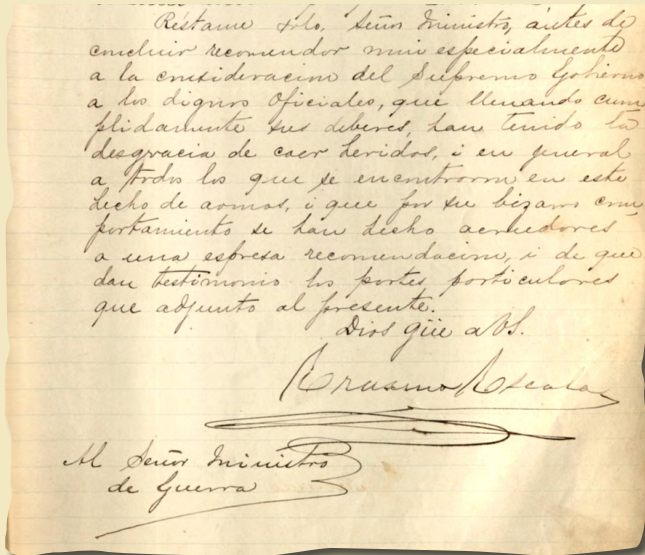 Réstame solo, Señor Ministro, ántes de
concluir recomendar mui especialmente
a la consideracion del Supremo Gobierno
a los dignos Oficiales, que llenando cum
plidamente sus deberes, han tenido la
desgracia de caer heridos, i en jeneral
a todos los que se encontraron en este
hecho de armas, i que por su bizarro com
portamiento se han hecho acreedores
a una espresa recomendacion, i de que
dan testimonio los partes particulares
que adjunto al presente.
Dios güe a VS.
Erasmo Escala
Al Señor Ministro
de Guerra